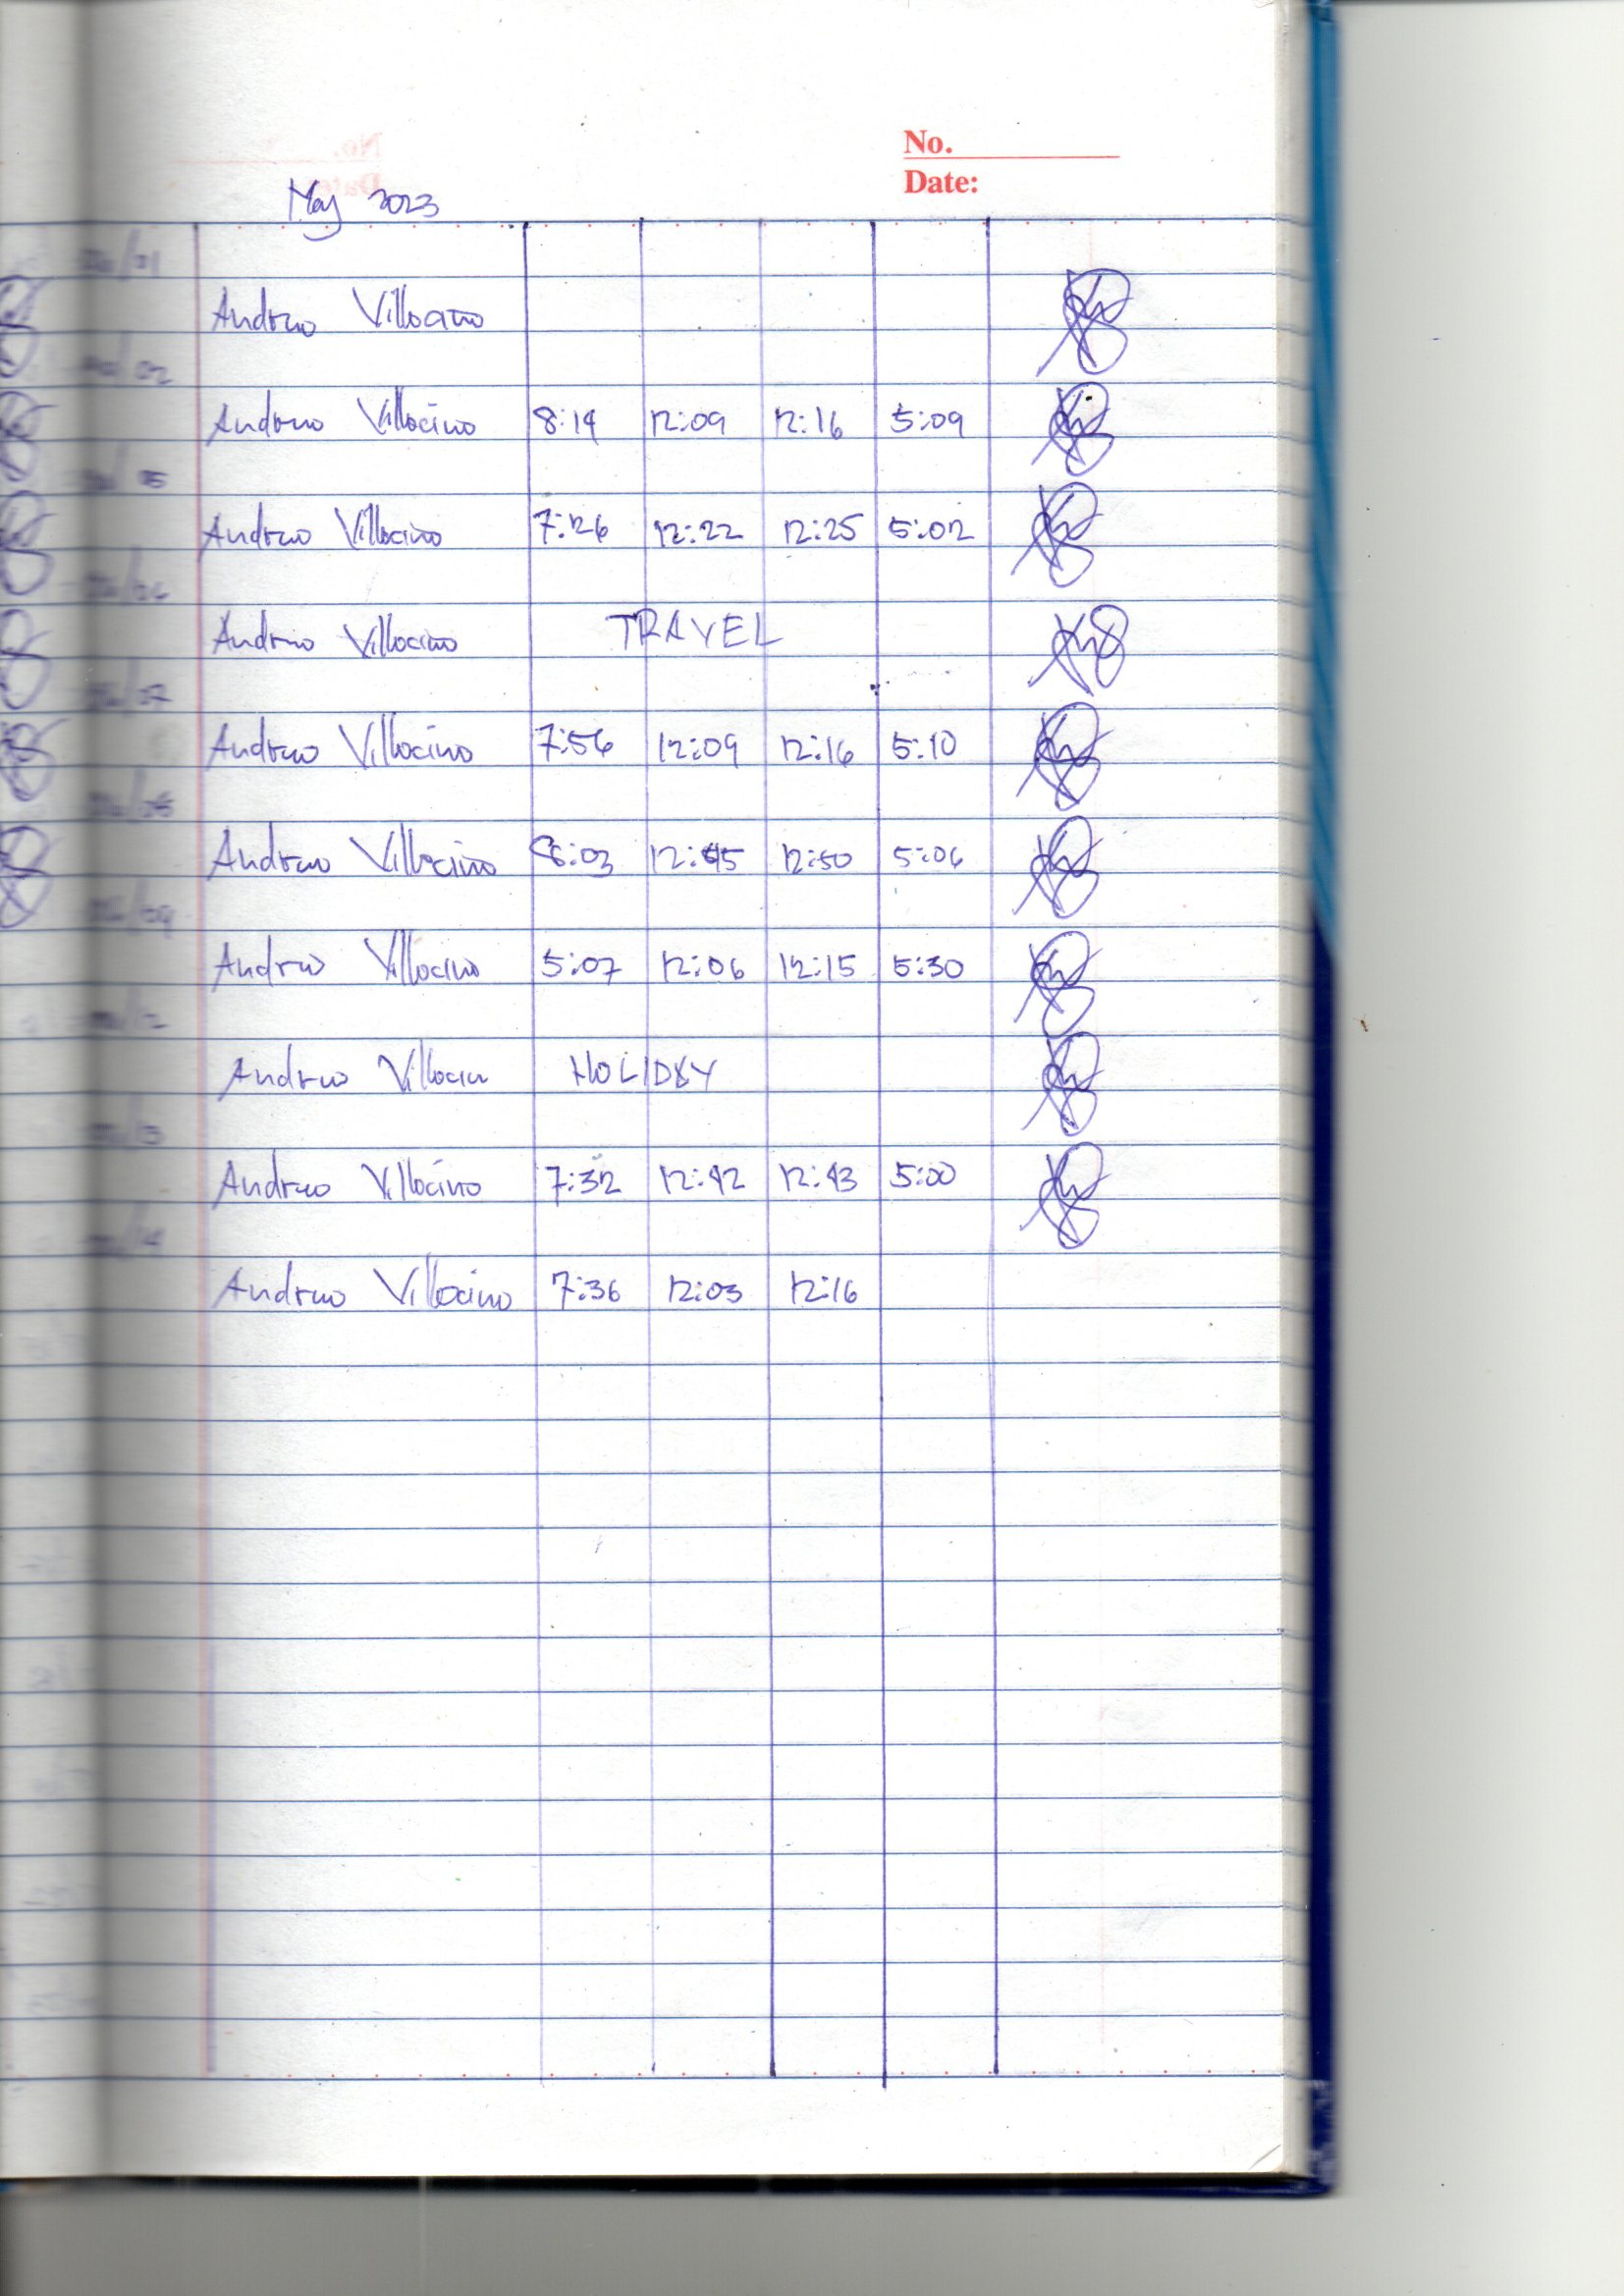 No.
Date:
May 2023
Andrew Villocino
Andrew Villocino 8:14 12:09 12:16 5:09
Andrew Villocino 7:26 12:22 12:25 5:02
Andrew Villocino TRAVEL
Andrew Villocino 7:56 12:09 12:16 5:10
Andrew Villocino 8:03 12:45 12:50 5:06
Andrew Villocino 5:07 12:06 12:15 5:30
Andrew Villocin HOLIDAY
Andrew Villocino 7:32 12:42 12:43 5:00
Andrew Villocino 7:36 12:03 12:16